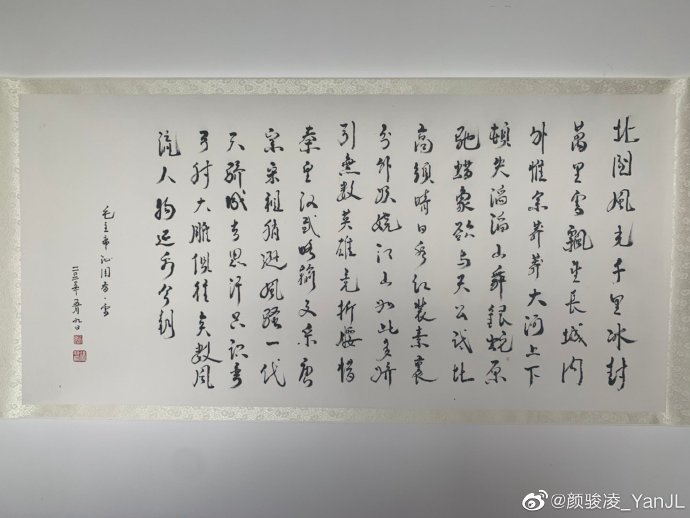 北国風光千里冰封
萬里雪飄望長城内
外惟余莽莽大河上下
頓失滔滔山舞銀蛇原
馳蜡象欲与天公试比
高须晴日看红装素裹
分外妖娆江山如此多娇
引無数英雄竞折腰惜
秦皇汉武略输文采唐
宗宋祖稍逊風骚一代
天骄成吉思汗只识弯
弓射大雕俱往矣数風
流人物还看今朝
毛主席沁园春·雪
月九日
@颜骏凌_YanJL